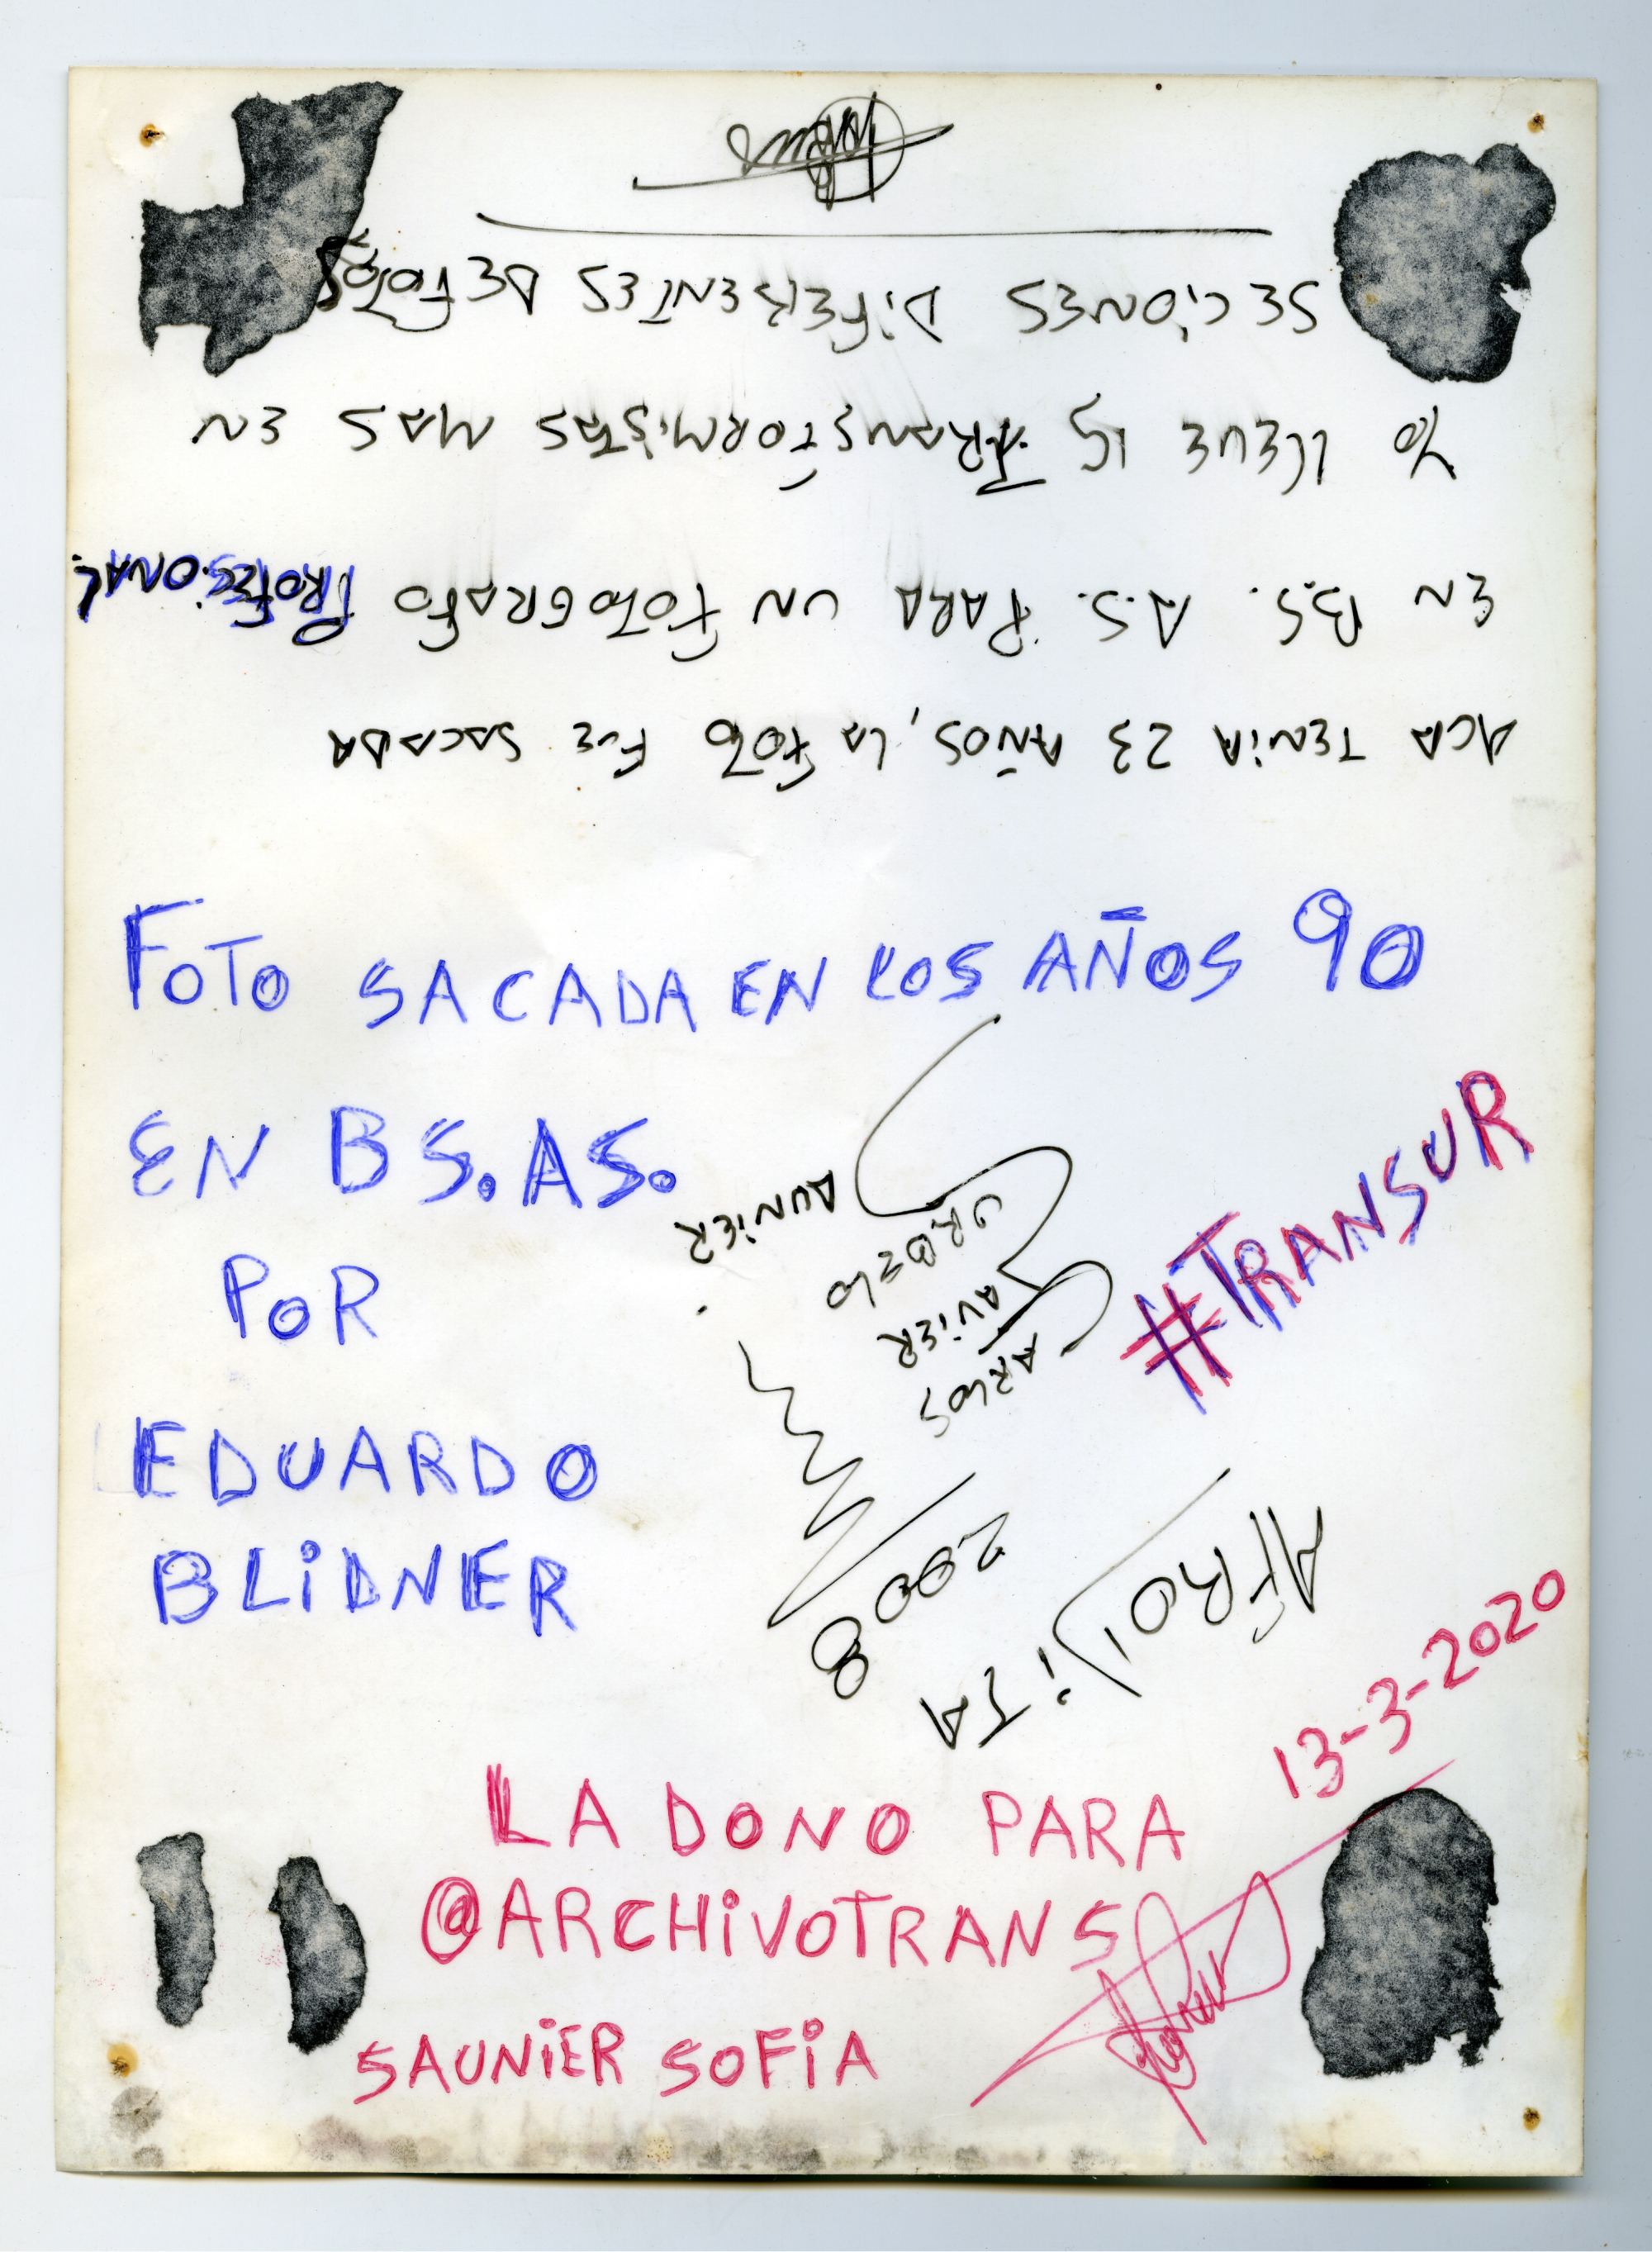 ACA TENiA 23 AÑOS, LA FOTO FUE SACADA
EN BS. A.S. PARA UN FOTOGRAFO PROFESiONAL.
YO LLEVE 15 TRANSFORMiSTAS MAS EN
SECiONES DiFERENTES DE FOTOS
FOTO SACADA EN LOS AÑOS 90
EN BS.AS.
POR
EDUARDO
BLiDNER
#TRANSUR
AFRODiTA
2008
CARLOS
JAViER
SAUNiER
13-3-2020
LA DONO PARA
@ARCHiVOTRANS
SAUNiER SOFiA